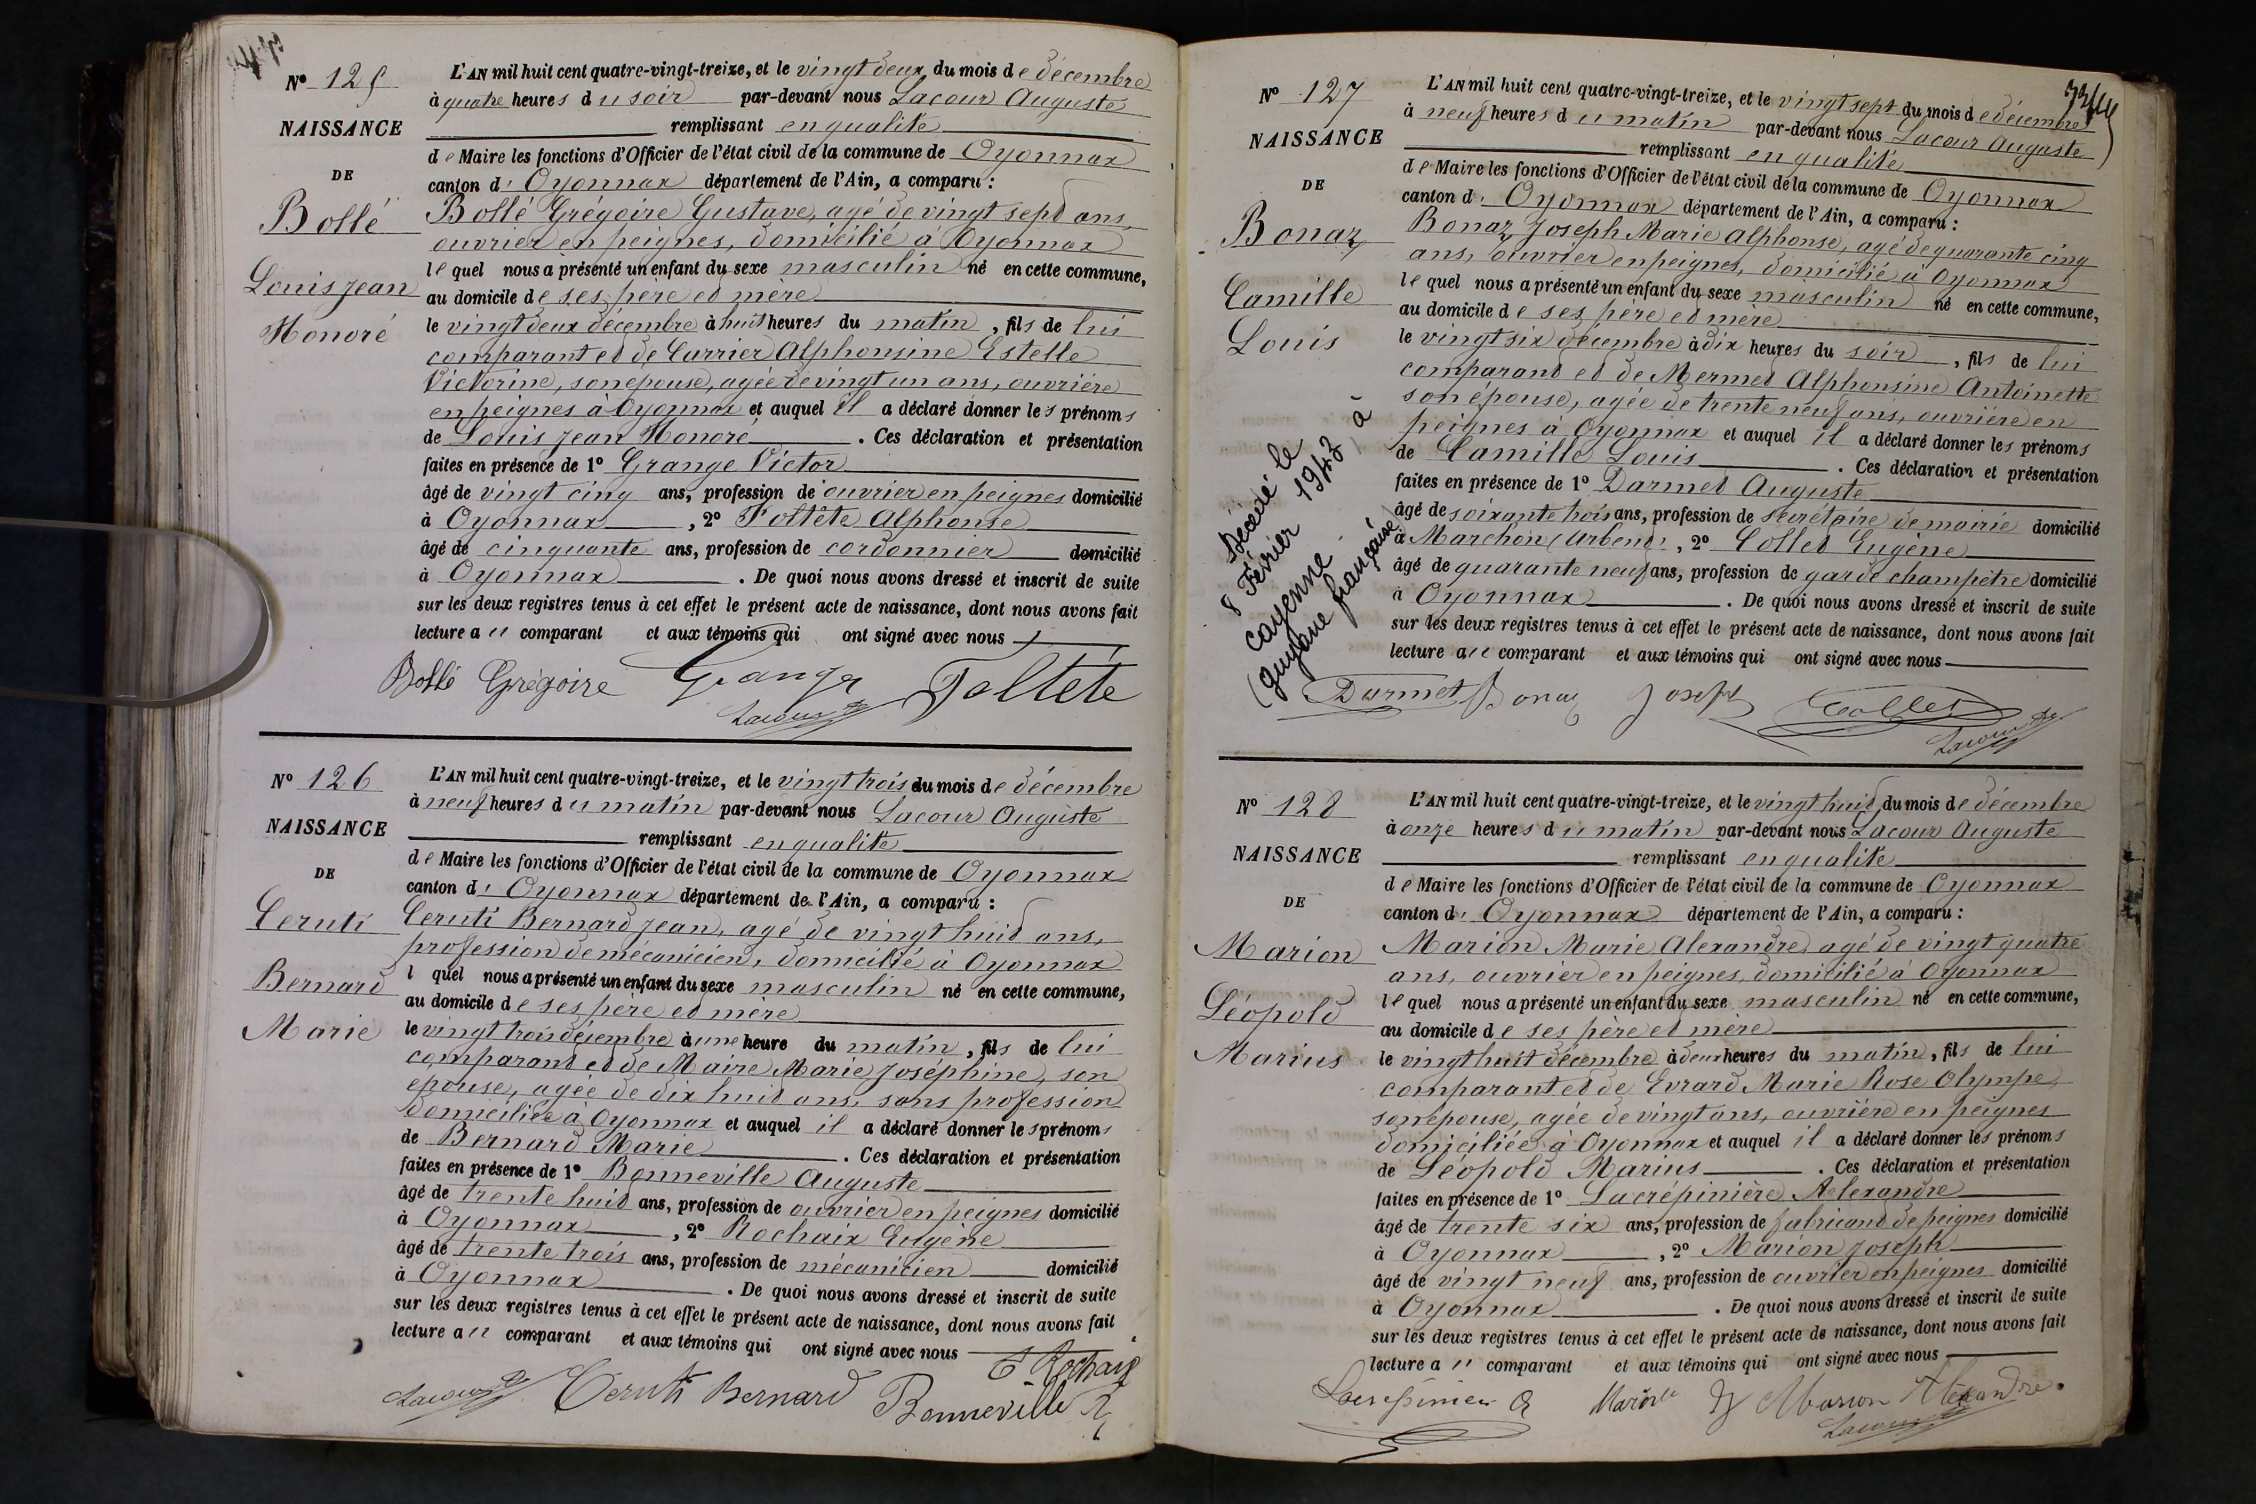 N° 125
NAISSANCE
DE
Bollé
Louis Jean
Honoré
L'AN mil huit cent quatre-vingt-treize, et le vingt deux du mois de décembre
à quatre heures du soir par-devant nous Lacour Auguste
remplissant en qualité
de Maire les fonctions d'Officier de l'état civil de la commune de Oyonnax
canton d' Oyonnax département de l'Ain, a comparu :
Bollé Grégoire Gustave, agé de vingt sept ans,
ouvrier en peignes, domicilié à Oyonnax
lequel nous a présenté un enfant du sexe masculin né en cette commune,
au domicile de ses père et mère
le vingt deux décembre à huit heures du matin, fils de lui
comparant et de Carrier Alphonsine Estelle
Victorine, son épouse, agée de vingt un ans, ouvrière
en peignes à Oyonnax et auquel il a déclaré donner les prénoms
de Louis Jean Honoré. Ces déclaration et présentation
faites en présence de 1° Grange Victor
âgé de vingt cinq ans, profession de ouvrier en peignes domicilié
à Oyonnax, 2° Foltête Alphonse
âgé de cinquante ans, profession de cordonnier domicilié
à Oyonnax. De quoi nous avons dressé et inscrit de suite
sur les deux registres tenus à cet effet le présent acte de naissance, dont nous avons fait
lecture au comparant et aux témoins qui ont signé avec nous
Bollé Grégoire Grange Foltête
Lacour
N° 126
NAISSANCE
DE
Ceruti
Bernard
Marie
L'AN mil huit cent quatre-vingt-treize, et le vingt trois du mois de décembre
à neuf heures du matin par-devant nous Lacour Auguste
remplissant en qualité
de Maire les fonctions d'Officier de l'état civil de la commune de Oyonnax
canton d' Oyonnax département de l'Ain, a comparu :
Ceruti Bernard Jean, agé de vingt huit ans,
profession de mécanicien, domicilié à Oyonnax
l quel nous a présenté un enfant du sexe masculin né en cette commune,
au domicile de ses père et mère
le vingt trois décembre à une heure du matin, fils de lui
comparant et de Maire Marie Joséphine, son
épouse, agée de dix huit ans, sans profession
domiciliée à Oyonnax et auquel il a déclaré donner les prénoms
de Bernard Marie. Ces déclaration et présentation
faites en présence de 1° Bonneville Auguste
âgé de trente huit ans, profession de ouvrier en peignes domicilié
à Oyonnax, 2° Rochaix Eugène
âgé de trente trois ans, profession de mécanicien domicilié
à Oyonnax. De quoi nous avons dressé et inscrit de suite
sur les deux registres tenus à cet effet le présent acte de naissance, dont nous avons fait
lecture au comparant et aux témoins qui ont signé avec nous
E Rochaix
Lacour Ceruti Bernard Bonneville A
N° 127
NAISSANCE
DE
Bonaz
Camille
Louis
Décédé le
8 Février 1943 à
Cayenne
(Guyane française)
L'AN mil huit cent quatre-vingt-treize, et le vingt sept du mois de décembre
à neuf heures du matin par-devant nous Lacour Auguste
remplissant en qualité
de Maire les fonctions d'Officier de l'état civil de la commune de Oyonnax
canton d' Oyonnax département de l'Ain, a comparu :
Bonaz Joseph Marie Alphonse, agé de quarante cinq
ans, ouvrier en peignes, domicilié à Oyonnax
lequel nous a présenté un enfant du sexe masculin né en cette commune,
au domicile de ses père et mère
le vingt six décembre à dix heures du soir, fils de lui
comparant et de Mermet Alphonsine Antoinette
son épouse, agée de trente neuf ans, ouvrière en
peignes à Oyonnax et auquel il a déclaré donner les prénoms
de Camille Louis. Ces déclaration et présentation
faites en présence de 1° Darmet Auguste
âgé de soixante trois ans, profession de secrétaire de mairie domicilié
à Marchon (Arbent), 2° Collet Eugène
âgé de quarante neuf ans, profession de garde champêtre domicilié
à Oyonnax. De quoi nous avons dressé et inscrit de suite
sur les deux registres tenus à cet effet le présent acte de naissance, dont nous avons fait
lecture au comparant et aux témoins qui ont signé avec nous
Darmet Bonaz Joseph Collet
Lacour
N° 128
NAISSANCE
DE
Marion
Léopold
Marius
L'AN mil huit cent quatre-vingt-treize, et le vingt huit du mois de décembre
à onze heures du matin par-devant nous Lacour Auguste
remplissant en qualité
de Maire les fonctions d'Officier de l'état civil de la commune de Oyonnax
canton d' Oyonnax département de l'Ain, a comparu :
Marion Marie Alexandre, agé de vingt quatre
ans, ouvrier en peignes, domicilié à Oyonnax
lequel nous a présenté un enfant du sexe masculin né en cette commune,
au domicile de ses père et mère
le vingt huit décembre à deux heures du matin, fils de lui
comparant et de Evrard Marie Rose Olympe,
son épouse, agée de vingt ans, ouvrière en peignes
domiciliée à Oyonnax et auquel il a déclaré donner les prénoms
de Léopold Marius. Ces déclaration et présentation
faites en présence de 1° Lacrépinière Alexandre
âgé de trente six ans, profession de fabricant de peignes domicilié
à Oyonnax, 2° Marion Joseph
âgé de vingt neuf ans, profession de ouvrier en peignes domicilié
à Oyonnax. De quoi nous avons dressé et inscrit de suite
sur les deux registres tenus à cet effet le présent acte de naissance, dont nous avons fait
lecture au comparant et aux témoins qui ont signé avec nous
Marion Alexandre
Lacour